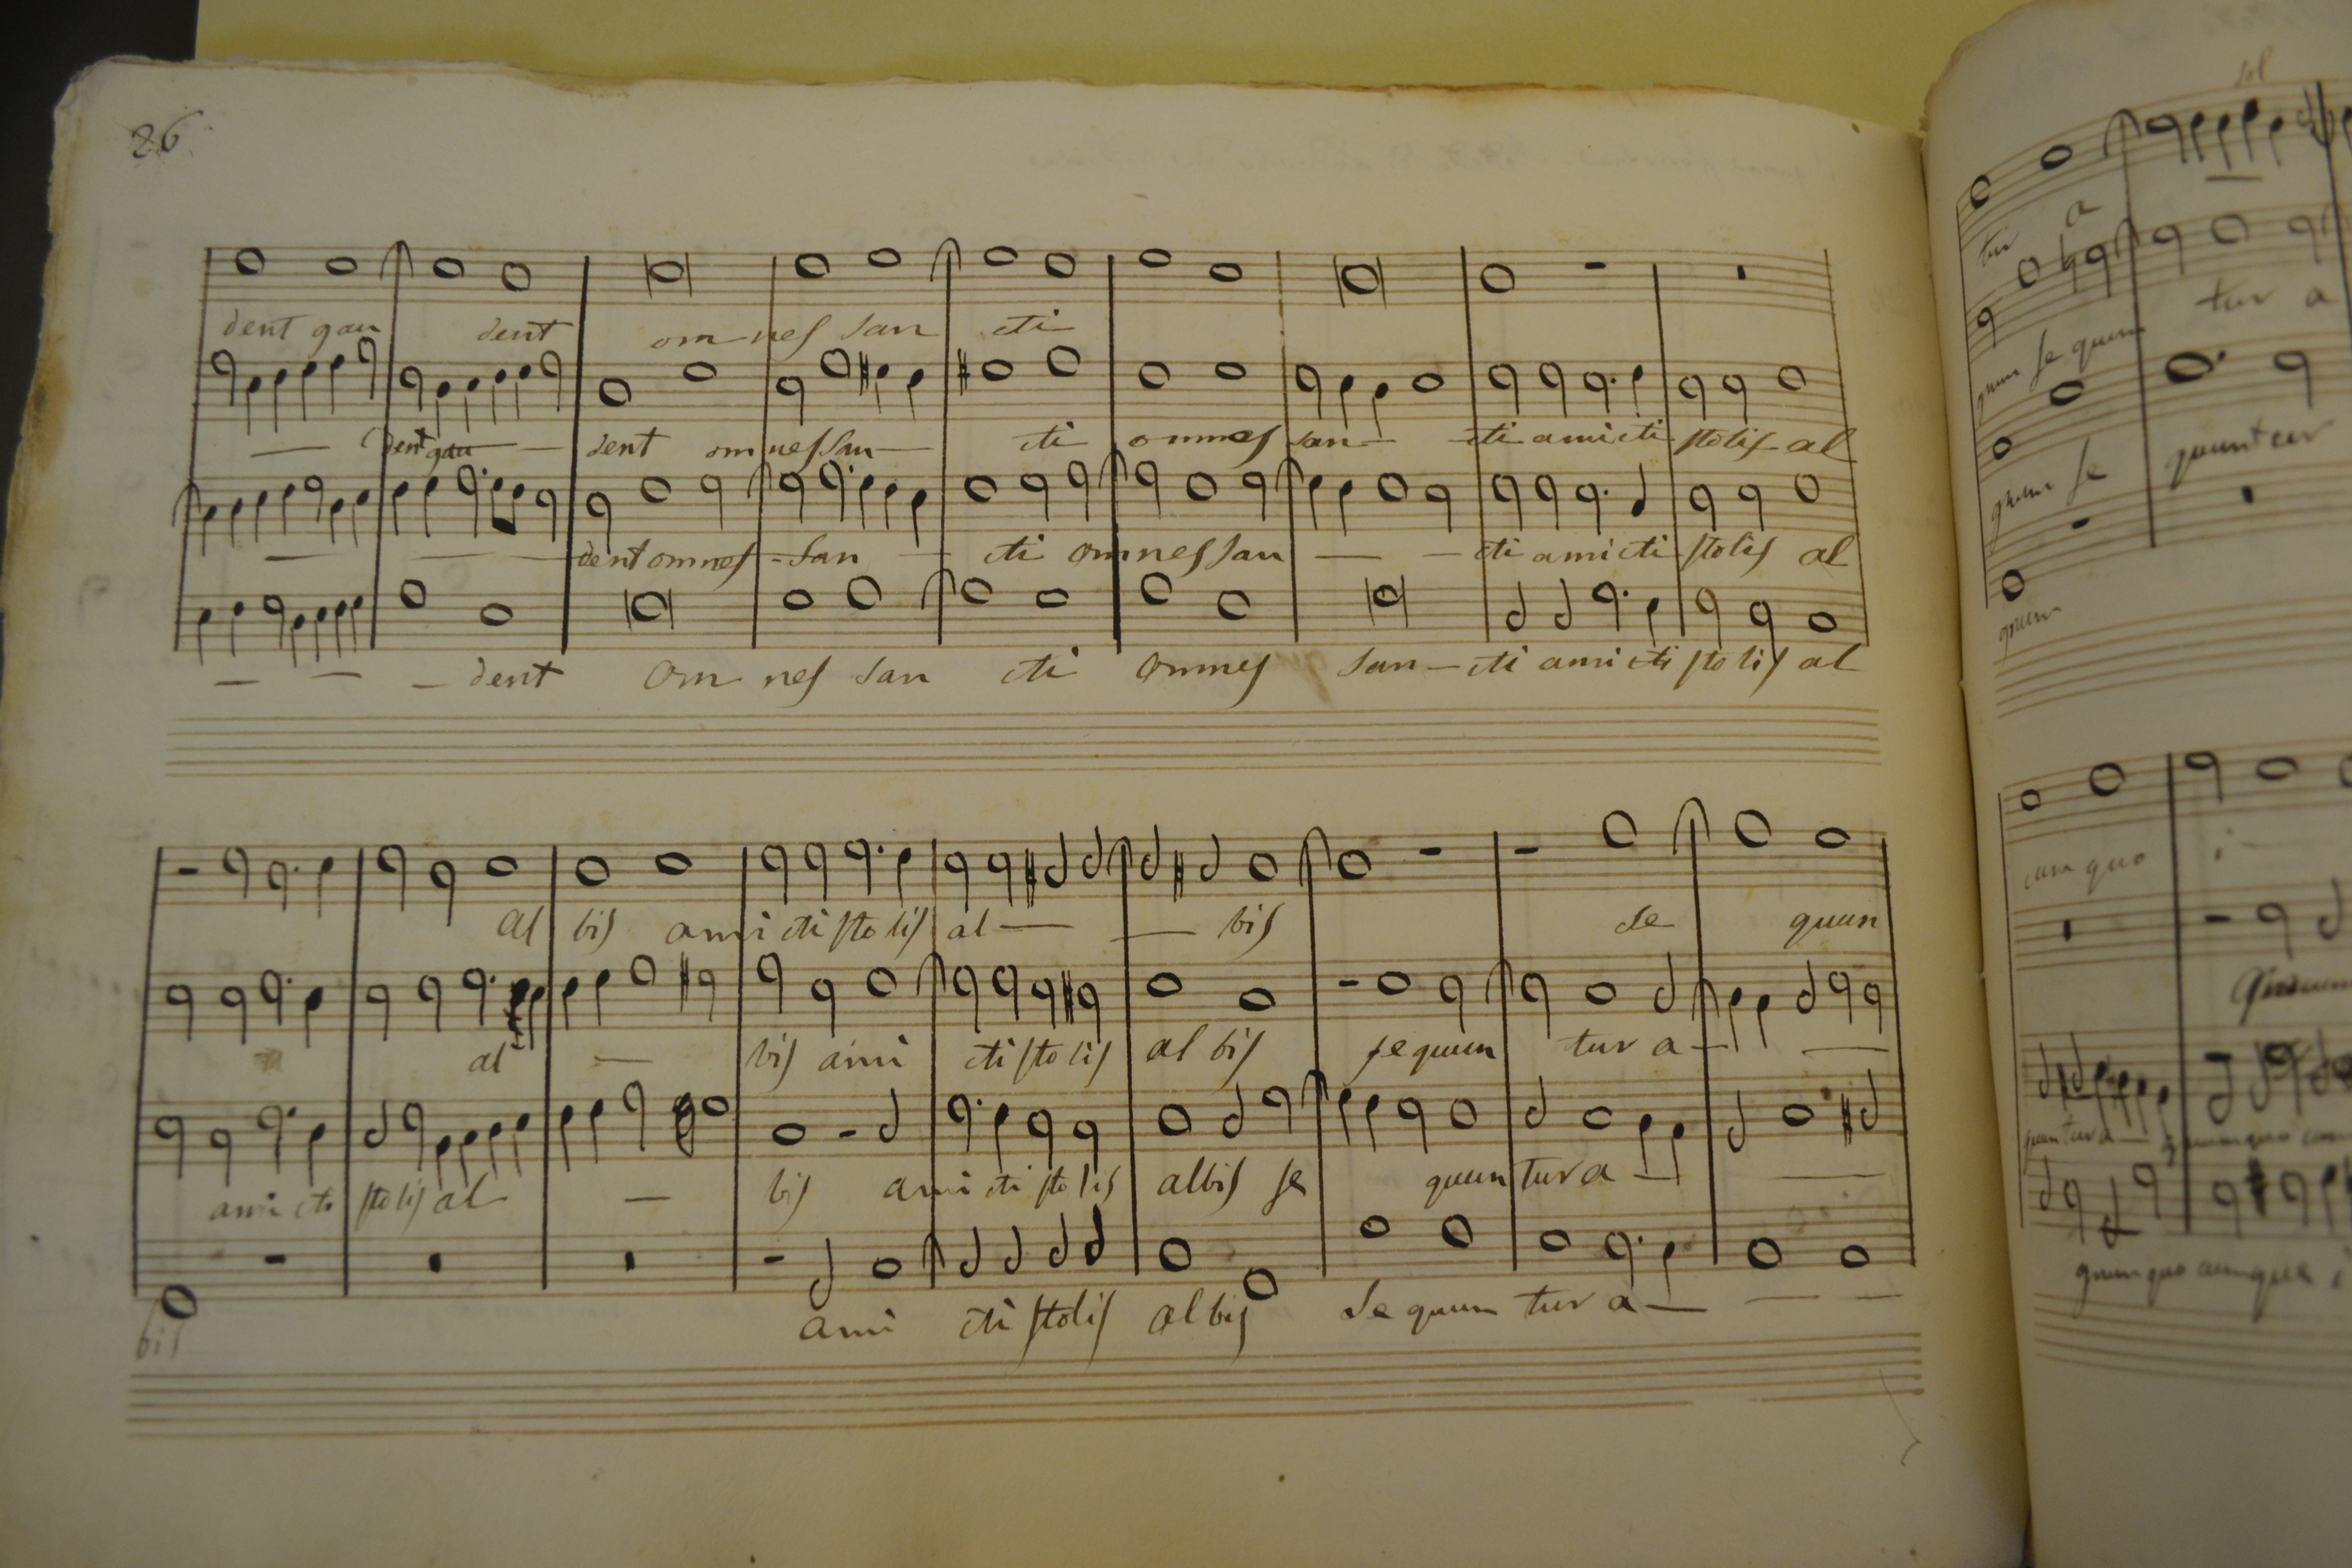 26
dent gau dent om nes san cti
dent gau dent om nes san cti omnes san cti amicti stolis al
dent omnes san cti omnes san cti amicti stolis al
dent Om nes san cti Omnes san cti amicti stolis al
al bis ami cti sto lis al bis se quun
al bis ami cti sto lis al bis se quun tur a
amicti stolis al bis ami cti sto lis albis se quun tur a
bis ami cti stolis al bis Se quun tur a
sol
tur a
quun se quun tur a
quun se quuntur
quun
cum quo i
quun tur a